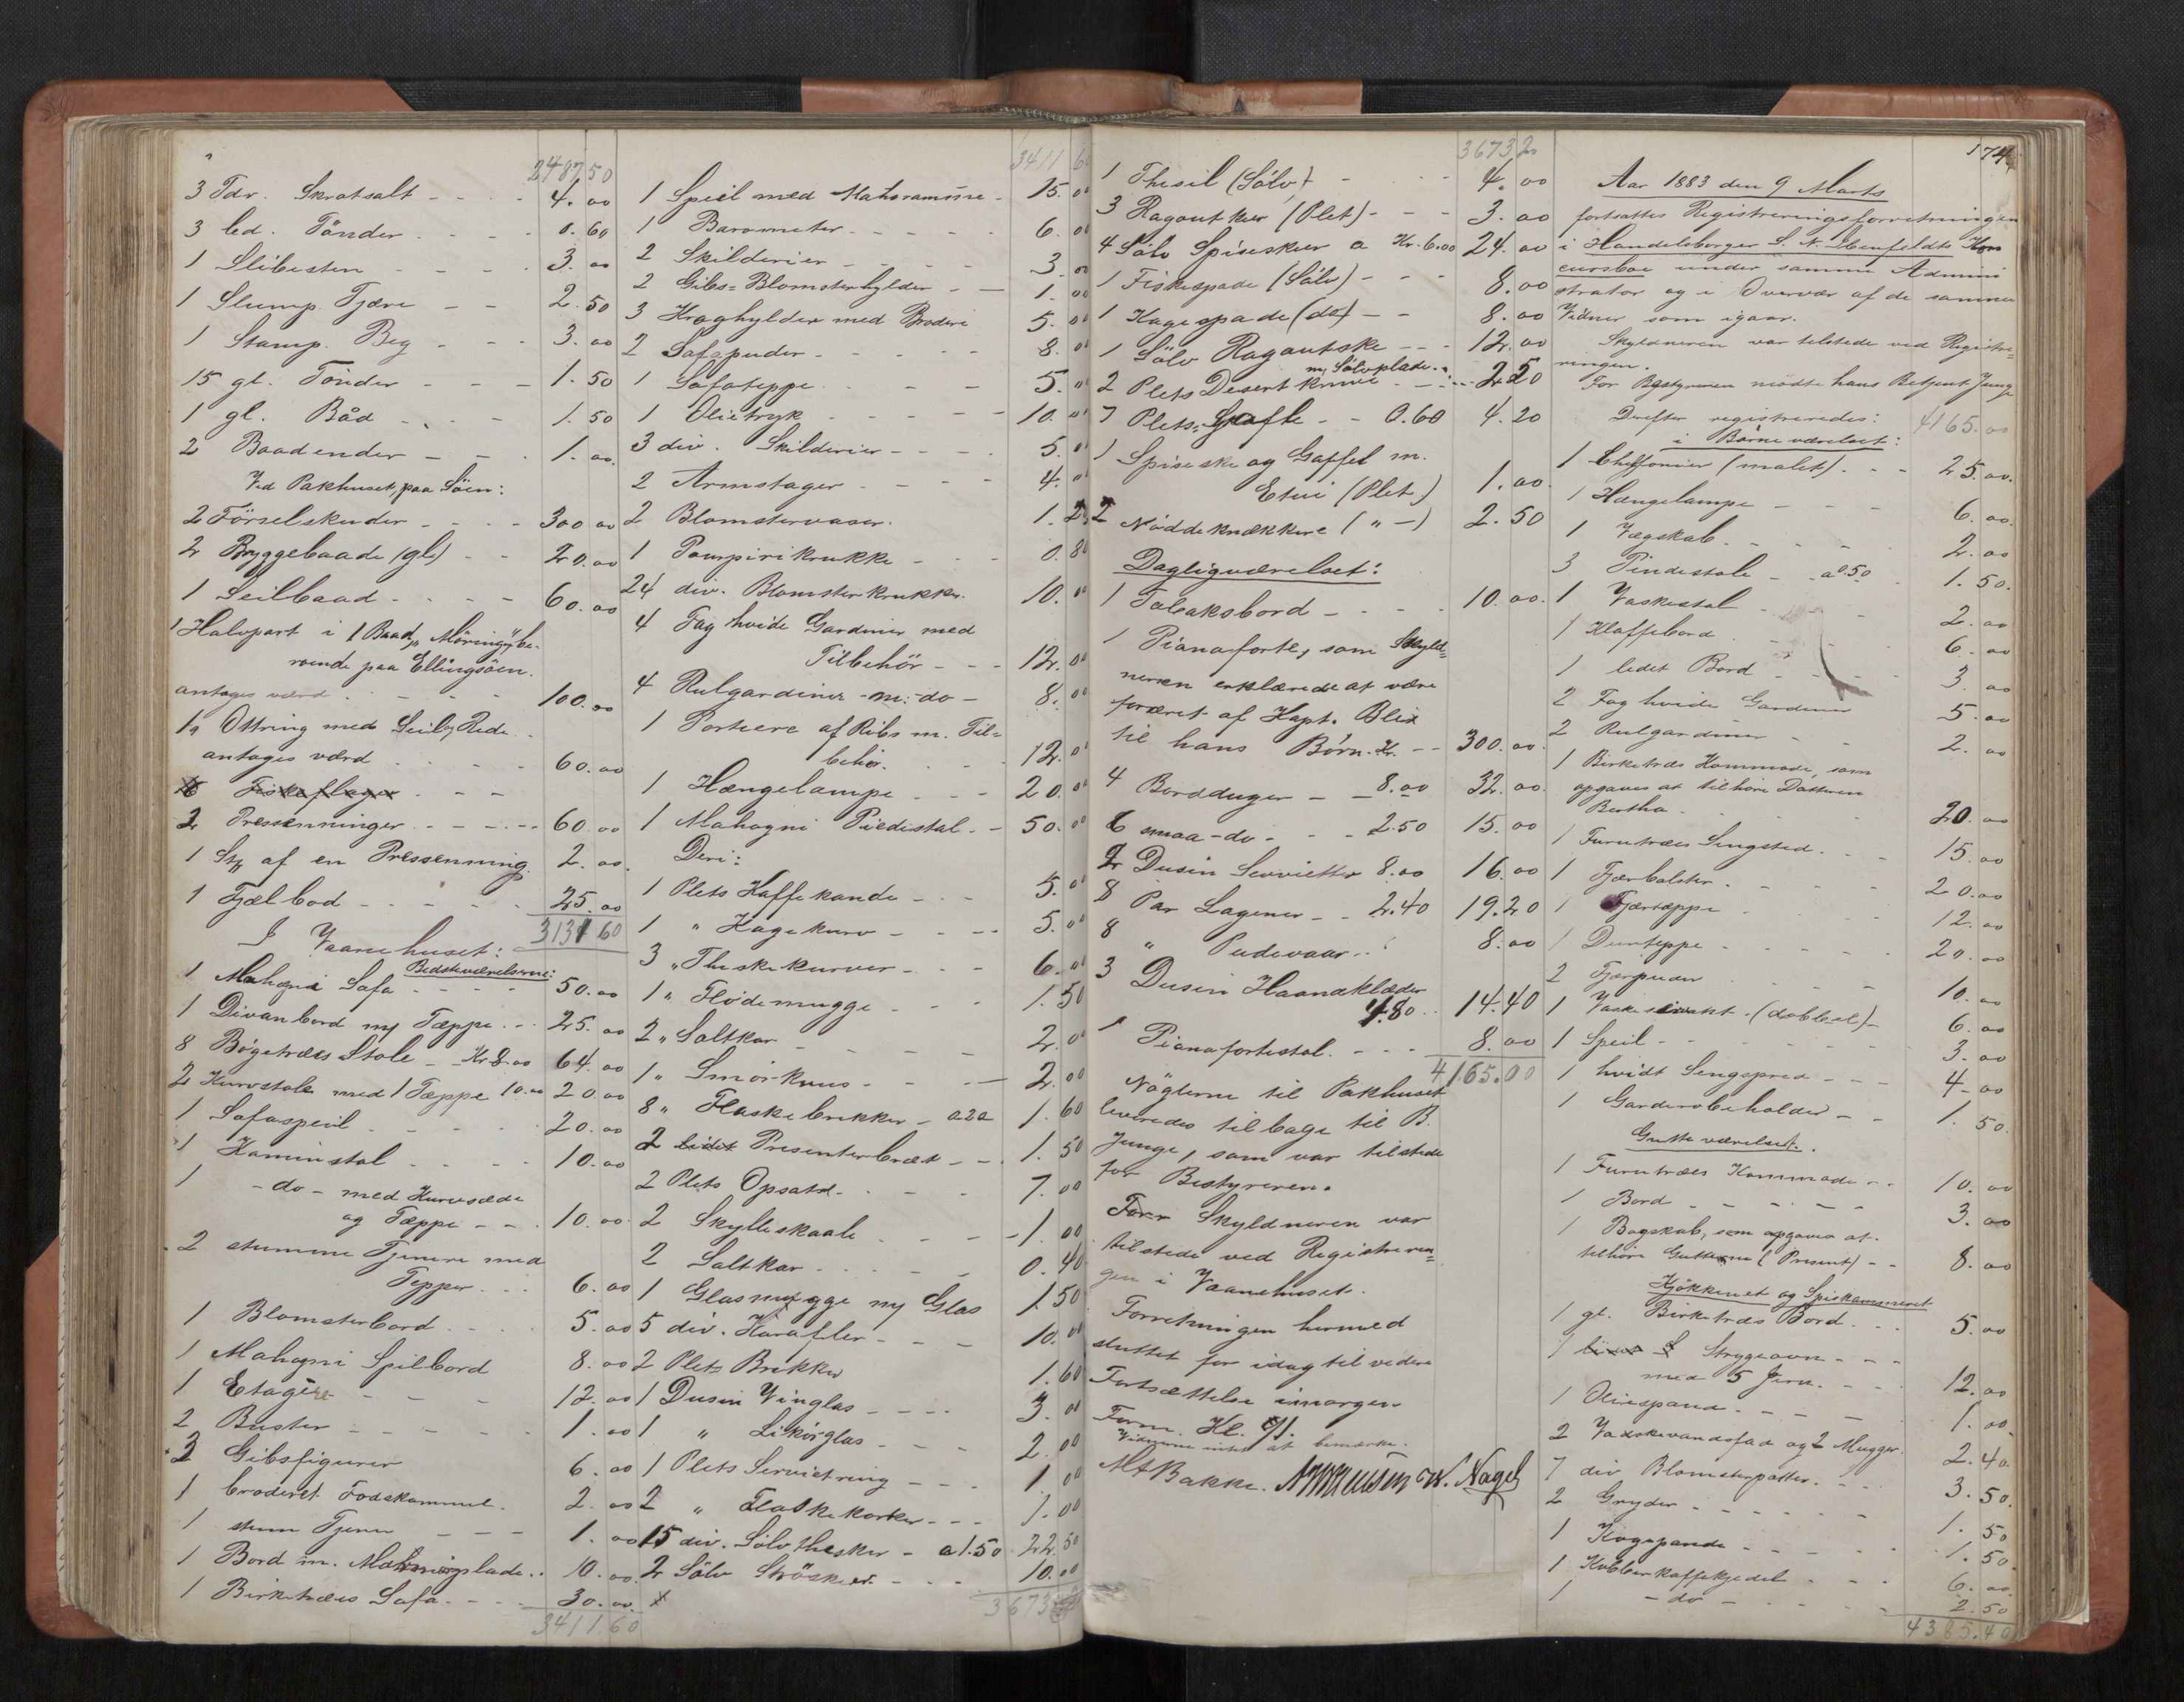 2487 50
3 Tdr. Skratsalt - - - - 4. 00
3 led. Tönder - - - - 0. 60
1 Slibesten - - - - 3. 00
1 Slump Tjære - - 2. 50
1 Stamp. Beg - - - 3. 00
15 gl. Tönder - - - 1. 50
1 gl. Båd - - - 1. 50
2 Baadender - - - 1. 00
Ved Pakhuset, paa Söen:
2 Förselskuder - - - 300 00
2 Bryggebaade (gl) - - 20. 00
1 Seilbaad - - - - 60. 00
1 Halvpart i 1 Baad, Möringij be-
roende paa Ellingsöen.
antages værd - - - - 100. 00
1 Ottring med Seil, Rede
antages værd - - - 60. 00
6 Fiskeflager - - -
2 Pressenninger - - - - 60 00
1 Stk af en Pressenning. 2. 00.
1 Fjælbod - - - - - 25. 00
3131 60
I Vaanehuset:
Bedsteværelserne:
1 Mahogni Sofa - - - - 50. 00
1 Divanbord m/ Tæppe - - 25. 00
8 Bögetræes Stole - Kr 8.00 64. 00
2 Kurvstole med 1 Tæppe 10.00 20. 00
1 Sofaspeil - - - - - 20. 00
1 Kaminstol - - - - 10. 00
1 - do - med Kurvsæde
og Tæppe - - - 10. 00
2 stumme Tjenere med
Tepper - - - 6. 00
1 Blomsterbord - - - - 5. 00
1 Mahogni Spilbord 8. 00
1 Etagère - - - 12. 00
2 Buster - - - - - 1. 00
3 Gibsfigurer 6. 00
1 broderet Fodskammel. 2. 00
1 stum Tjener - - - 1. 00
1 Bord m. Marmorplade. . 10. 00
1 Birketræes Sofa - - - 30. 00
3411. 60
3411 60
1 Speil med Mahoramme - 15. 00
1 Barometer - - - - - 6. 00
2 Skilderier - - - - - 3. 00
2 Gibs=Blomsterhylder - - 1. 00
3 Kroghylder med Broderi 5. 00
2 Sofapuder - - - - - 8. 00
1 Sofateppe - - - - 5. 00
1 Olietryk - - - - - 10. 00
3 div. Skilderier - - - - 5. 00
2 Armstager - - - - 4. 00
2 Blomstervaser. 1. 20
1 Poupirikrukke - - - 0. 80
24 div. Blomsterkrukker. 10. 00
4 Fag hvide Gardiner med
Tilbehör - - - 12. 00
4 Rulgardiner - m: do - 8. 00
1 Portiere af Ribs m. Til=
behör. - - - - 12. 00
1 Hængelampe - - - 20. 00
1 Mahogni Piedistal - - 50. 00
Deri:
1 Plets Kaffekande - - - 5. 00
1 " Kagekurv - - - - 5. 00
3 " Theskekurver - - - 6. 00
1 " Flödemugge - - - 1. 50
2 " Saltkar - - - - 2. 00
1 " Smörkrus - - - 2. 00
8 " Flaskebrikker - a 20 1. 60
2 lidet Presenterbræt - - 1. 50
2 Plets Opsats - - - - 7. 00
2 Skylleskaale - - - - 1. 00
2 Saltkar - - - - 0. 40
1 Glasmugge m/ Glas 1. 50
5 div. Karafler - - - 10. 00
2 Plets Brikker 1. 60
1 Dusin Vinglas - - - - 3. 00
1 " Likörglas - - - 2. 00
1 Plets Servietring - - - 1 00
2 " Flaskekorker - - - 1. 00
15 div. Sölv theskeer - a 1.50 22. 50
2 Sölv Ströskeer - - - 10. 00
x 3673
3673 20
1 Thesil (Sölv) - - - 4. 00
3 Ragoutskeer (Plet) - - - 3. 00
4 Sölv Spiseskeer a Kr. 6.00 24. 00
1 Fiskespade (Sölv) - - - 8. 00
1 Kagespade (do) - - 8. 00
1 Sölv Ragoutske - - - 12. 00
m/ Sölvplade. .
2 Plets Desertknive - - - - 2. 50
7 Plets=Gafle - - 0.60 4. 20
1 Spiseske og Gaffel m.
Etui (Plet) 1. 00.
2 Nöddeknækkere ( " - ) 2. 50
Dagligværelset:
1 Tobaksbord - - - - 10. 00.
1 Pianoforte, som Skyld=
neren erklærede at være
foræret af Kapt. Blix
til hans Børn. Kr. - - 300. 00.
4 Bordduger - - 8.00 32. 00.
6 smaa - do - - - 2.50 15. 00
2 Dusin Servietter 8.00 16. 00
8 Par Lagener - - 2.40 19. 20
8 " Pudevaar . . 8. 00
3 Dusin Haandklæder
4.80 . . 14. 40
1 Pianofortestol. - - - 8. 00
4165. 00
Nöglerne til Pakhuset
leveredes tilbage til B.
Junge, som var tilstede
for Bestyreren.
Forr Skyldneren var
tilstede ved Registrerin=
gen i Vaanehuset.
Forretningen hermed
sluttet for idag til videre
Fortsættelse imorgen
Form. Kl. 9.
Vidnerne intet at bemærke.
Mt Bakke. W. Nagel
174
Aar 1883 den 9 Marts
fortsattes Registreringsforretningen
i Handelsborger S. N. Ibenfeldts Kon
cursboe under samme Admini
strator og i Overvær af de samme
Vidner som igaar.
Skyldneren var tilstede ved Registre=
ringen.
For Bestyreren mödte hans Betjent Junge
Derefter registreredes: 4165. 00
i Börneværelset:
1 Cheffonier (malet) . - - 25. 00.
1 Hængelampe - - - 6. 00.
1 Vægskab. - - - - 2. 00
3 Pindestole - - a 0.50 1. 50.
1 Vaskestol - 2. 00
1 Klaffebord - - 6. 00
1 ledet Bord - - - 3. 00
2 Fag hvide Gardener 5. 00
2 Rulgardiner - - 2. 00
1 Birketræs Kommode, som
opgaves at tilhöre Datteren
Bertha. 20. 00
1 Furutræes Sengsted. - - 15. 00
1 Fjærbolster. - - - - 20. 00
1 Fjærtæppe 12. 00
1 Dunteppe - - - - 20. 00
2 Fjærpuder - - - 10. 00
1 Vaskeservant. (dobbel) - 6. 00
1 Speil - - - - - - 3. 00
1 hvidt Sengspred - - - 4. 00
1 Garderobeholder - - 1. 50.
Gutteværelset.
1 Furutræes Kommode - - 10. 00
1 Bord - - - - - 3. 00
1 Bogskab, som opgaves at
tilhöre Gutterne (Present) - - 8. 00
Kjökkenet og Spiskammeret
1 gl. Birketræs Bord. - - 5. 00
1 Strygeovn - - -
med 5 Jern. - - 12. 00
1 Oliespand. - - - - 1. 00.
2 Vaskevandsfad og 2 Mugger. 2. 40.
7 div Blomsterpotter. - - 3. 50.
2 Gryder - - - - - 1. 50
1 Kogepande - - - - 1. 50.
1 Kobberkaffekjedel - - - 6. 00.
1 - do - - - - - 2. 50
4385. 40